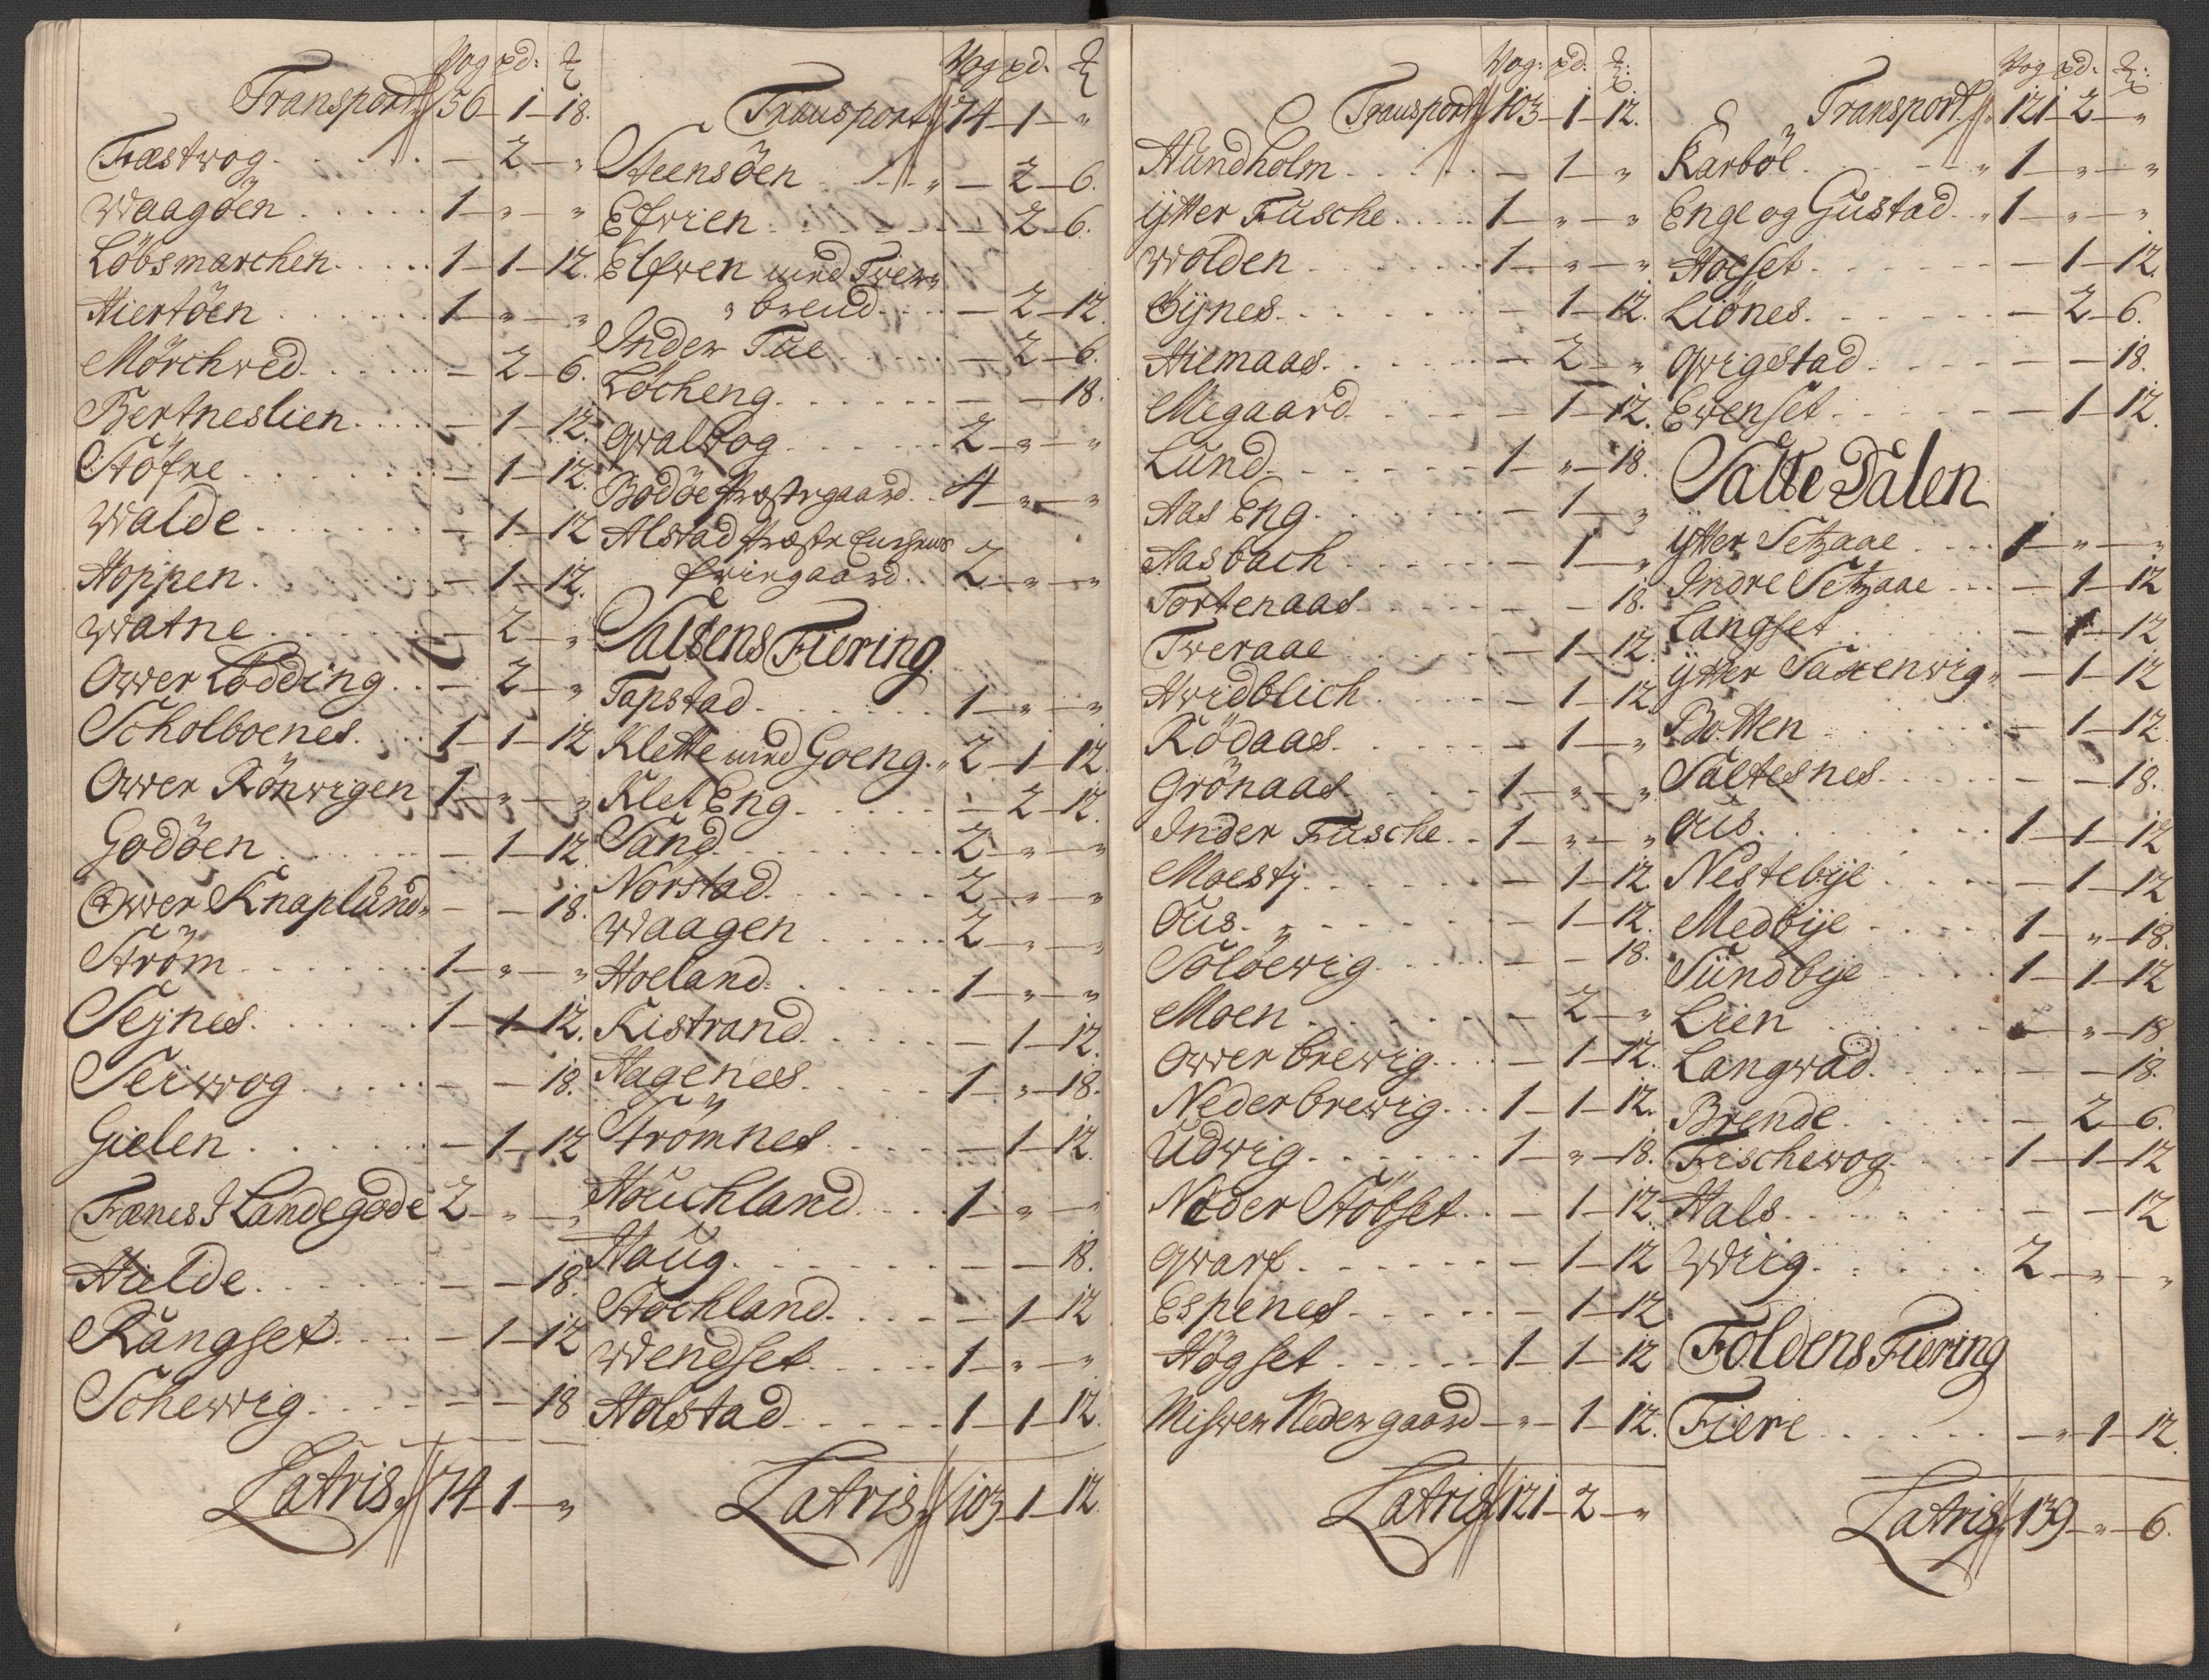 Wog pd: ℔
Transport 56 - 1 - 18.
Fæstwog - 2 - "
Waagöen 1 - " - "
Löbsmarchen 1 - 1 - 12.
Hiertöen 1 - " - "
Mörchwed - 2 - 6.
Bertneslien - 1 - 12.
Støfre - 1 - 12.
Walde - 1 - 12
Hoppen - 1 - 12.
Watne - 2 - "
Ower Lödding - 2 - "
Scholboenes 1 - 1 - 12
Ower Rönwigen 1 - " - "
Godöen - 1 - 12.
Ower Knaplund - - 18.
Ström 1 - " - "
Sejnes 1 - 1 - 12.
Seiwog - - 18.
Gielen - 1 - 12
Fænes I Landegode 2 - " - "
Hulde - - 18
Rangset - 1 - 12
Schewig - - 18
Latris 74 - 1 - "
Wog pd. ℔
Transport 74 - 1 - "
Steensöen - 2 - 6.
Efwien - 2 - 6.
Elfwen und Twer
breud - 2 - 12.
Inder Tue - 2 - 6.
Löcheng - - 18.
Qwalwog 2 - " - "
Bodöe Præstegaard 4 - " - "
Alstad Præste
gaard 2 - " - "
Saltens Fiering
Tapstad 1 - " - "
Klette und Goeng 2 - 1 - 12.
Klet Eng - 2 - 12.
Sand 2 - " - "
Norstad 2 - " - "
Waagen 2 - " - "
Hoeland 1 - " - "
Kistrand - 1 - 12.
Hagenes 1 - " - 18.
Strömnes - 1 - 12.
Houchland 1 - " - "
Haug - - 18.
Stochland - 1 - 12
Wendset 1 - " - "
Holstad 1 - 1 - 12.
Latris 103 - 1 - 12.
Wog: pd: ℔:
Transport 103 - 1 - 12.
Hundholm - 1 - "
ytter Fusche 1 - " - "
Wolden 1 - " - "
Bÿnes - 1 - 12.
Hiemaas - 2 - "
Megaard - 1 - 12.
Lund 1 - " - 18
Aas Eng - 1 - "
Aasbach - 1 - "
Tortenaas - - 18.
Tweraae - 1 - 12.
Hwidblich - 1 - 12
Rödaas - 1 - "
Grönaas 1 - " - "
Inder Fusche 1 - " - "
Moestÿ - 1 - 12
Ous - 1 - 12.
Solöewig - - 18.
Moen - 2 - "
Ower brewig - 1 - 12.
Neder brewig 1 - 1 - 12.
Udwig 1 - " - 18.
Neder Stöbset - 1 - 12.
Qwarf - 1 - 12
Espenes - 1 - 12
Högset 1 - 1 - 12
Miswer Nedergaard - " - 1 - 12.
Latris 121 - 2 - "
Wog pd: ℔:
Transport 121 - 2 - "
Karböl 1 - " - "
Enge og Gustad 1 - " - "
Hoeset - 1 - 12.
Liönes - 2 - 6.
Qwigstad - - 18.
Ewenset - 1 - 12.
Salte Dalen
ytter Setzaae 1 - " - "
Indre Setzaae - 1 - 12
Langset - 1 - 12
ytter Saxenwig - 1 - 12
Botten - 1 - 12.
Saltesnes - - 18.
Ous 1 - 1 - 12
Nestebÿe - 1 - 12
Medbÿe 1 - " - 18.
Sundbÿe 1 - 1 - 12
Lien - " - 18
Langwad - - 18.
Brende - 2 - 6.
Fischewog 1 - 1 - 12
Hals - - 12
Wiig 2 - " - "
Foldens Fiering
Fiere - " 1 - 12.
Latris 139 - " - 6.